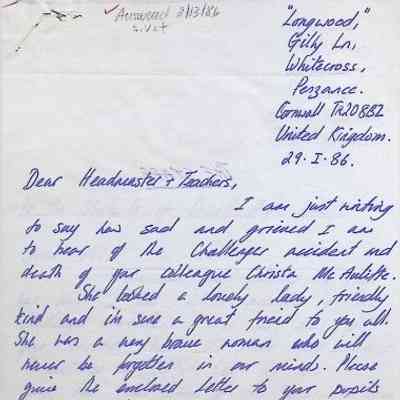 Answered 2/13/86
"Longwood,"
Gilly Ln,
Whitecross,
Penzance.
Cornwall TR208BZ
United Kingdom.
29. I. 86.
Dear Headmaster + Teachers,
I am just writing
to say how sad and grieved I am
to hear of the Challenger accident and
death of your colleague Christa McAuliffe.
She looked a lovely lady, friendly
kind and im sure a great friend to you all.
She was a very brave woman who will
never be forgotten in our minds. Please
give the enclosed letter to your pupils